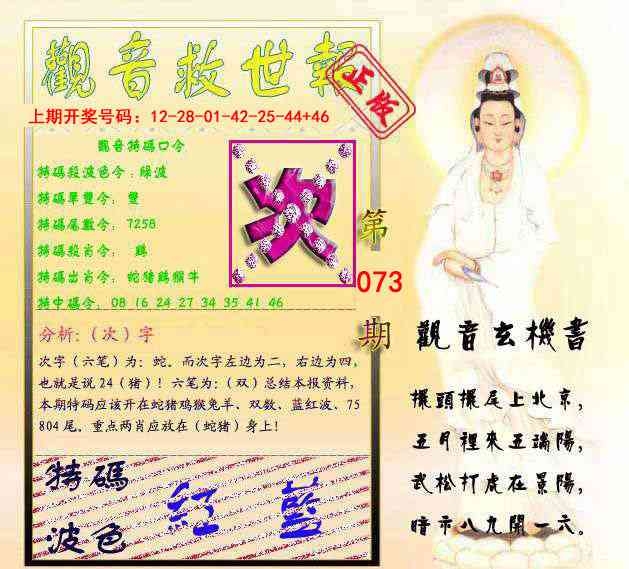 觀音救世報
正版
上期开奖号码：12-28-01-42-25-44+46
觀音特碼口令
特碼殺波色令：綠波
特碼單雙令： 雙
特碼尾數令： 7258
特碼殺肖令： 鷄
特碼出肖令： 蛇猪鷄猴牛
特中碼令： 08 16 24 27 34 35 41 46
次
第
073
期
分析:（次）字
次字（六笔）为：蛇。而次字左边为二，右边为四，
也就是说24（猪）！六笔为：（双）总结本报资料，
本期特码应该开在蛇猪鸡猴兔羊、双数、蓝红波、75
804尾。重点两肖应放在（蛇猪）身上！
特碼
波色
紅 藍
觀音玄機書
擺頭擺尾上北京，
五月裡來五端陽，
武松打虎在景陽，
暗市八九開一六。